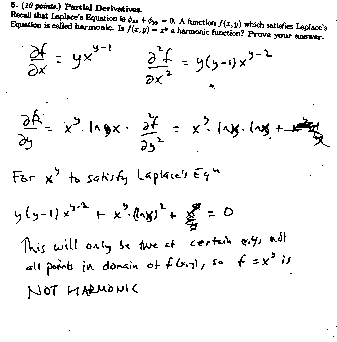 5. (10 points.) Partial Derivatives.
Recall that Laplace's Equation is ϕxx + ϕyy = 0. A function f(x, y) which satisfies Laplace's
Equation is called harmonic. Is f(x, y) = x^y a harmonic function? Prove your answer.
∂f/∂x = yx^(y-1)   ∂²f/∂x² = y(y-1)x^(y-2)
∂f/∂y = x^y · ln x · ∂²f/∂y² = x^y · lnx · lnx +
For x^y to satisfy Laplace's Eqn
y(y-1)x^(y-2) + x^y · (lnx)² + = 0
This will only be true at certain x,y, not
all points in domain of f(x,y), so f = x^y is
NOT HARMONIC